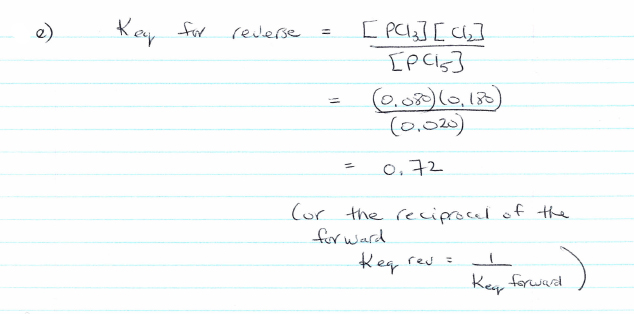 e) Keq for reverse = [PCl3][Cl2]
[PCl5]
= (0.080)(0.180)
(0.020)
= 0.72
(or the reciprocal of the
forward
Keq rev = 1
Keq forward)